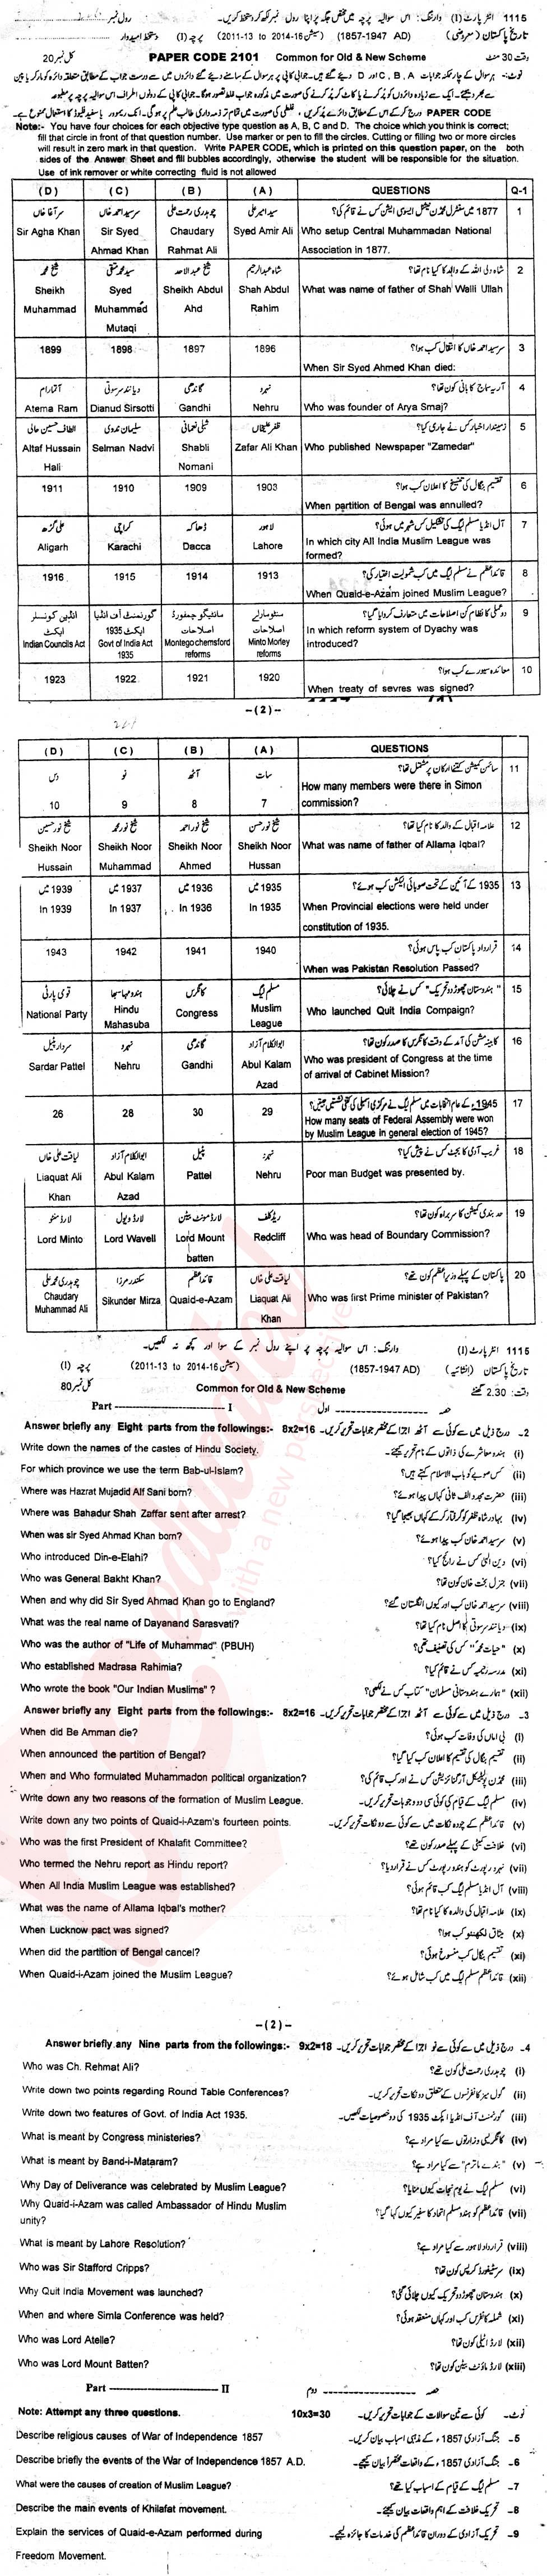 1115 انٹر پارٹ (I) وارننگ: اس سوالیہ پرچہ میں مختص جگہ پر اپنا رول نمبر لکھ کر دستخط کریں۔ رول نمبر
تاریخ پاکستان (معروضی) (1857-1947 AD) (سیشن 16-2014 to 13-2011) پرچہ (I) دستخط امیدوار
وقت 30 منٹ PAPER CODE 2101 Common for Old & New Scheme کل نمبر 20
Note:- You have four choices for each objective type question as A, B, C and D. The choice which you think is correct;
fill that circle in front of that question number. Use marker or pen to fill the circles. Cutting or filling two or more circles
will result in zero mark in that question. Write PAPER CODE, which is printed on this question paper, on the both
sides of the Answer Sheet and fill bubbles accordingly, otherwise the student will be responsible for the situation.
Use of ink remover or white correcting fluid is not allowed
(D) (C) (B) (A) QUESTIONS Q-1
سر آغا خاں سر سید احمد خاں چوہدری رحمت علی سید امیر علی 1877 میں سنٹرل محمڈن نیشنل ایسوسی ایشن کس نے قائم کی؟ 1
Sir Agha Khan Sir Syed Ahmad Khan Chaudary Rahmat Ali Syed Amir Ali Who setup Central Muhammadan National
Association in 1877.
شیخ محمد سید محمد متقی شیخ عبدالاحد شاہ عبدالرحیم شاہ ولی اللہ کے والد کا کیا نام تھا؟ 2
Sheikh Muhammad Syed Muhammad Mutaqi Sheikh Abdul Ahd Shah Abdul Rahim What was name of father of Shah Walli Ullah
1899 1898 1897 1896 سر سید احمد خاں کا انتقال کب ہوا؟ 3
When Sir Syed Ahmed Khan died:
آتما رام دیانند سرسوتی گاندھی نہرو آریہ سماج کا بانی کون تھا؟ 4
Atema Ram Dianud Sirsotti Gandhi Nehru Who was founder of Arya Smaj?
الطاف حسین حالی سلیمان ندوی شبلی نعمانی ظفر علی خاں زمیندار اخبار کس نے جاری کیا؟ 5
Altaf Hussain Hali Selman Nadvi Shabli Nomani Zafar Ali Khan Who published Newspaper "Zamedar"
1911 1910 1909 1903 تقسیم بنگال کی تنسیخ کا اعلان کب ہوا؟ 6
When partition of Bengal was annulled?
علی گڑھ کراچی ڈھاکہ لاہور آل انڈیا مسلم لیگ کی تشکیل کس شہر میں ہوئی؟ 7
Aligarh Karachi Dacca Lahore In which city All India Muslim League was
formed?
1916 1915 1914 1913 قائداعظم نے مسلم لیگ میں کب شمولیت اختیار کی؟ 8
When Quaid-e-Azam joined Muslim League?
انڈین کونسلر ایکٹ گورنمنٹ آف انڈیا ایکٹ 1935 مانٹیگو چمسفورڈ اصلاحات منٹو مارلے اصلاحات دو عملی کا نظام کن اصلاحات میں متعارف کروایا گیا؟ 9
Indian Councils Act Govt of India Act 1935 Montego chemsford reforms Minto Morley reforms In which reform system of Dyachy was
introduced?
1923 1922 1921 1920 معاہدہ سیورے کب ہوا؟ 10
When treaty of sevres was signed?
-(2)-
(D) (C) (B) (A) QUESTIONS
دس نو آٹھ سات سائمن کمیشن کتنے ارکان پر مشتمل تھا؟ 11
10 9 8 7 How many members were there in Simon
commission?
شیخ نور حسین شیخ نور محمد شیخ نور احمد شیخ نور حسن علامہ اقبال کے والد کا نام کیا تھا؟ 12
Sheikh Noor Hussain Sheikh Noor Muhammad Sheikh Noor Ahmed Sheikh Noor Hussan What was name of father of Allama Iqbal?
1939 میں 1937 میں 1936 میں 1935 میں 1935 کے آئین کے تحت صوبائی الیکشن کب ہوئے؟ 13
In 1939 In 1937 In 1936 In 1935 When Provincial elections were held under
constitution of 1935.
1943 1942 1941 1940 قرارداد پاکستان کب پاس ہوئی؟ 14
When was Pakistan Resolution Passed?
قومی پارٹی ہندو مہاسبھا کانگرس مسلم لیگ "ہندوستان چھوڑ دو تحریک" کس نے چلائی؟ 15
National Party Hindu Mahasuba Congress Muslim League Who launched Quit India Campaign?
سردار پٹیل نہرو گاندھی ابوالکلام آزاد کابینہ مشن کی آمد کے وقت کانگرس کا صدر کون تھا؟ 16
Sardar Pattel Nehru Gandhi Abul Kalam Azad Who was president of Congress at the time
of arrival of Cabinet Mission?
26 28 30 29 1945ء کے عام انتخابات میں مسلم لیگ نے مرکزی اسمبلی کی کتنی نشستیں جیتیں؟ 17
How many seats of Federal Assembly were won
by Muslim League in general election of 1945?
لیاقت علی خاں ابوالکلام آزاد پٹیل نہرو غریب آدمی کا بجٹ کس نے پیش کیا؟ 18
Liaquat Ali Khan Abul Kalam Azad Pattel Nehru Poor man Budget was presented by.
لارڈ منٹو لارڈ ویول لارڈ مونٹ بیٹن ریڈ کلف حد بندی کمیشن کا سربراہ کون تھا؟ 19
Lord Minto Lord Wavell Lord Mount batten Redcliff Who was head of Boundary Commission?
چوہدری محمد علی سکندر مرزا قائداعظم لیاقت علی خاں پاکستان کے پہلے وزیراعظم کون تھے؟ 20
Chaudary Muhammad Ali Sikunder Mirza Quaid-e-Azam Liaquat Ali Khan Who was first Prime minister of Pakistan?
1115 انٹر پارٹ (I) وارننگ: اس سوالیہ پرچہ پر اپنے رول نمبر کے سوا اور کچھ نہ لکھیں۔
تاریخ پاکستان (انشائیہ) (1857-1947 AD) (سیشن 16-2014 to 13-2011) پرچہ (I)
وقت: 2.30 گھنٹے Common for Old & New Scheme کل نمبر 80
Part ---------- I حصہ ---------- اول
Answer briefly any Eight parts from the followings:- 8x2=16 2۔ درج ذیل میں سے کوئی سے آٹھ اجزا کے مختصر جوابات تحریر کریں۔
Write down the names of the castes of Hindu Society. (i) ہندو معاشرے کی ذاتوں کے نام تحریر کیجئے۔
For which province we use the term Bab-ul-Islam? (ii) کس صوبے کو باب الاسلام کہتے ہیں؟
Where was Hazrat Mujadid Alf Sani born? (iii) حضرت مجدد الف ثانی کہاں پیدا ہوئے؟
Where was Bahadur Shah Zaffar sent after arrest? (iv) بہادر شاہ ظفر کو گرفتار کر کے کہاں بھیجا گیا؟
When was sir Syed Ahmad Khan born? (v) سر سید احمد خاں کب پیدا ہوئے؟
Who introduced Din-e-Elahi? (vi) دین الٰہی کس نے رائج کیا؟
Who was General Bakht Khan? (vii) جنرل بخت خان کون تھا؟
When and why did Sir Syed Ahmad Khan go to England? (viii) سر سید احمد خاں کب اور کیوں انگلستان گئے؟
What was the real name of Dayanand Sarasvati? (ix) دیانند سرسوتی کا اصل نام کیا تھا؟
Who was the author of "Life of Muhammad" (PBUH) (x) "حیات محمد" کس کی تصنیف تھی؟
Who established Madrasa Rahimia? (xi) مدرسہ رحیمیہ کس نے قائم کیا؟
Who wrote the book "Our Indian Muslims" ? (xii) "ہمارے ہندوستانی مسلمان" کتاب کس نے لکھی؟
Answer briefly any Eight parts from the followings:- 8x2=16 3۔ درج ذیل میں سے کوئی سے آٹھ اجزا کے مختصر جوابات تحریر کریں۔
When did Be Amman die? (i) بی اماں کی وفات کب ہوئی؟
When announced the partition of Bengal? (ii) تقسیم بنگال کی تقسیم کا اعلان کب کیا گیا؟
When and Who formulated Muhammadon political organization? (iii) محمڈن پولیٹیکل آرگنائزیشن کس نے اور کب قائم کی؟
Write down any two reasons of the formation of Muslim League. (iv) مسلم لیگ کے قیام کی کوئی سی دو وجوہات تحریر کریں۔
Write down any two points of Quaid-i-Azam's fourteen points. (v) قائداعظم کے چودہ نکات میں سے کوئی سے دو نکات تحریر کریں۔
Who was the first President of Khalafit Committee? (vi) خلافت کمیٹی کے پہلے صدر کون تھے؟
Who termed the Nehru report as Hindu report? (vii) نہرو رپورٹ کو ہندو رپورٹ کس نے قرار دیا؟
When All India Muslim League was established? (viii) آل انڈیا مسلم لیگ کب قائم ہوئی؟
What was the name of Allama Iqbal's mother? (ix) علامہ اقبال کی والدہ کا کیا نام تھا؟
When Lucknow pact was signed? (x) میثاق لکھنئو کب ہوا؟
When did the partition of Bengal cancel? (xi) تقسیم بنگال کب منسوخ ہوئی؟
When Quaid-i-Azam joined the Muslim League? (xii) قائداعظم مسلم لیگ میں کب شامل ہوئے؟
-(2)-
Answer briefly any Nine parts from the followings:- 9x2=18 4۔ درج ذیل میں سے کوئی سے نو اجزا کے مختصر جوابات تحریر کریں۔
Who was Ch. Rehmat Ali? (i) چوہدری رحمت علی کون تھے؟
Write down two points regarding Round Table Conferences? (ii) گول میز کانفرنسوں کے متعلق دو نکات تحریر کریں۔
Write down two features of Govt. of India Act 1935. (iii) گورنمنٹ آف انڈیا ایکٹ 1935 کی دو خصوصیات لکھیں۔
What is meant by Congress ministeries? (iv) کانگریسی وزارتوں سے کیا مراد ہے؟
What is meant by Band-i-Mataram? (v) "بندے ماترم" سے کیا مراد ہے؟
Why Day of Deliverance was celebrated by Muslim League? (vi) مسلم لیگ نے یوم نجات کیوں منایا؟
Why Quaid-i-Azam was called Ambassador of Hindu Muslim (vii) قائداعظم کو ہندو مسلم اتحاد کا سفیر کیوں کہا گیا؟
unity?
What is meant by Lahore Resolution? (viii) قرارداد لاہور سے کیا مراد ہے؟
Who was Sir Stafford Cripps? (ix) سر سٹیفورڈ کرپس کون تھا؟
Why Quit India Movement was launched? (x) ہندوستان چھوڑ دو تحریک کیوں چلائی گئی؟
When and where Simla Conference was held? (xi) شملہ کانفرنس کب اور کہاں منعقد ہوئی؟
Who was Lord Atelle? (xii) لارڈ اٹیلی کون تھا؟
Who was Lord Mount Batten? (xiii) لارڈ ماؤنٹ بیٹن کون تھا؟
Part ---------- II حصہ ---------- دوم
Note: Attempt any three questions. 10x3=30 نوٹ۔ کوئی سے تین سوالات کے جوابات تحریر کریں۔
Describe religious causes of War of Independence 1857 5۔ جنگ آزادی 1857ء کے مذہبی اسباب بیان کریں۔
Describe briefly the events of the War of Independence 1857 A.D. 6۔ جنگ آزادی 1857ء کے واقعات مختصراً بیان کیجیے۔
What were the causes of creation of Muslim League? 7۔ مسلم لیگ کے قیام کے اسباب کیا تھے؟
Describe the main events of Khilafat movement. 8۔ تحریک خلافت کے اہم واقعات بیان کیجئے۔
Explain the services of Quaid-e-Azam performed during 9۔ تحریک آزادی کے دوران قائداعظم کی خدمات کا جائزہ لیجیے۔
Freedom Movement.